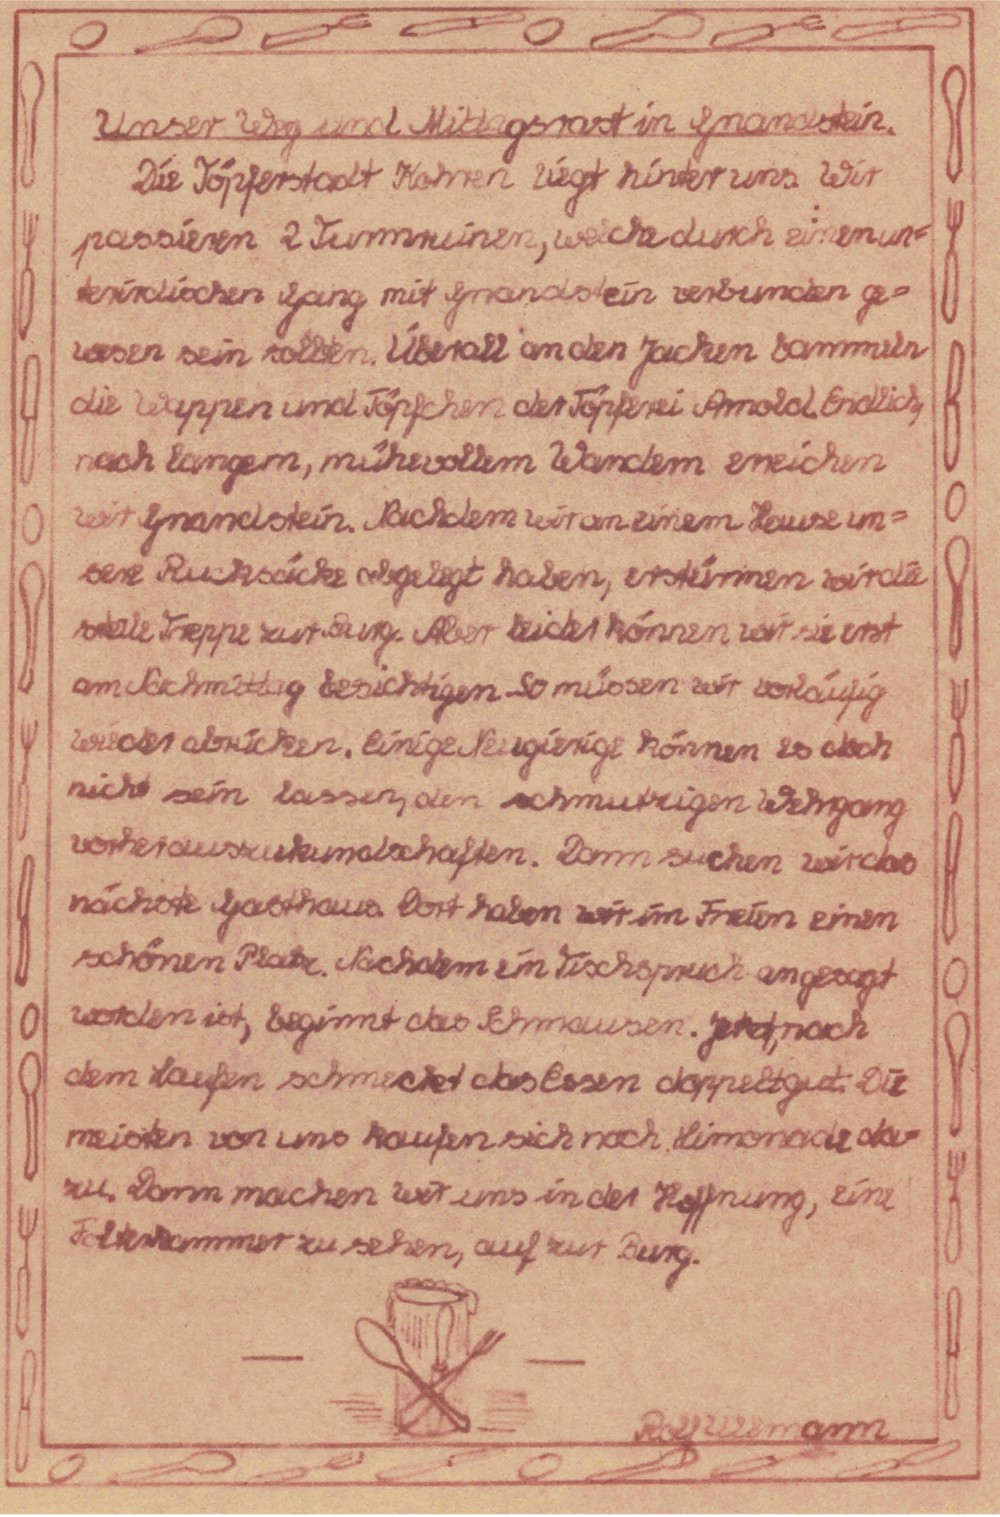 Unser Weg und Mittagsrast in Gnandstein.
Die Töpferstadt Kohren liegt hinter uns. Wir
passieren 2 Turmruinen, welche durch einen un=
terirdischen Gang mit Gnandstein verbunden ge=
wesen sein sollen. Überall an den Jacken bammeln
die Wappen und Töpfchen der Töpferei Arnold. Endlich,
nach langem, mühevollem Wandern erreichen
wir Gnandstein. Nachdem wir an einem Hause un=
sere Rucksäcke abgelegt haben, erstürmen wir die
steile Treppe zur Burg. Aber leider können wir sie erst
am Nachmittag besichtigen. So müssen wir vorläufig
wieder abrücken. Einige Neugierige können es doch
nicht sein lassen, den schmutzigen Wehrgang
vorher auszukundschaften. Dann suchen wir das
nächste Gasthaus. Dort haben wir im Freien einen
schönen Platz. Nachdem ein Tischspruch angesagt
worden ist, beginnt das Schmausen. Jetzt, nach
dem Laufen schmecket das Essen doppelt gut. Die
meisten von uns kaufen sich noch Limonade da=
zu. Dann machen wir uns in der Hoffnung, eine
Folterkammer zu sehen, auf zur Burg.
Rolf Ullmann